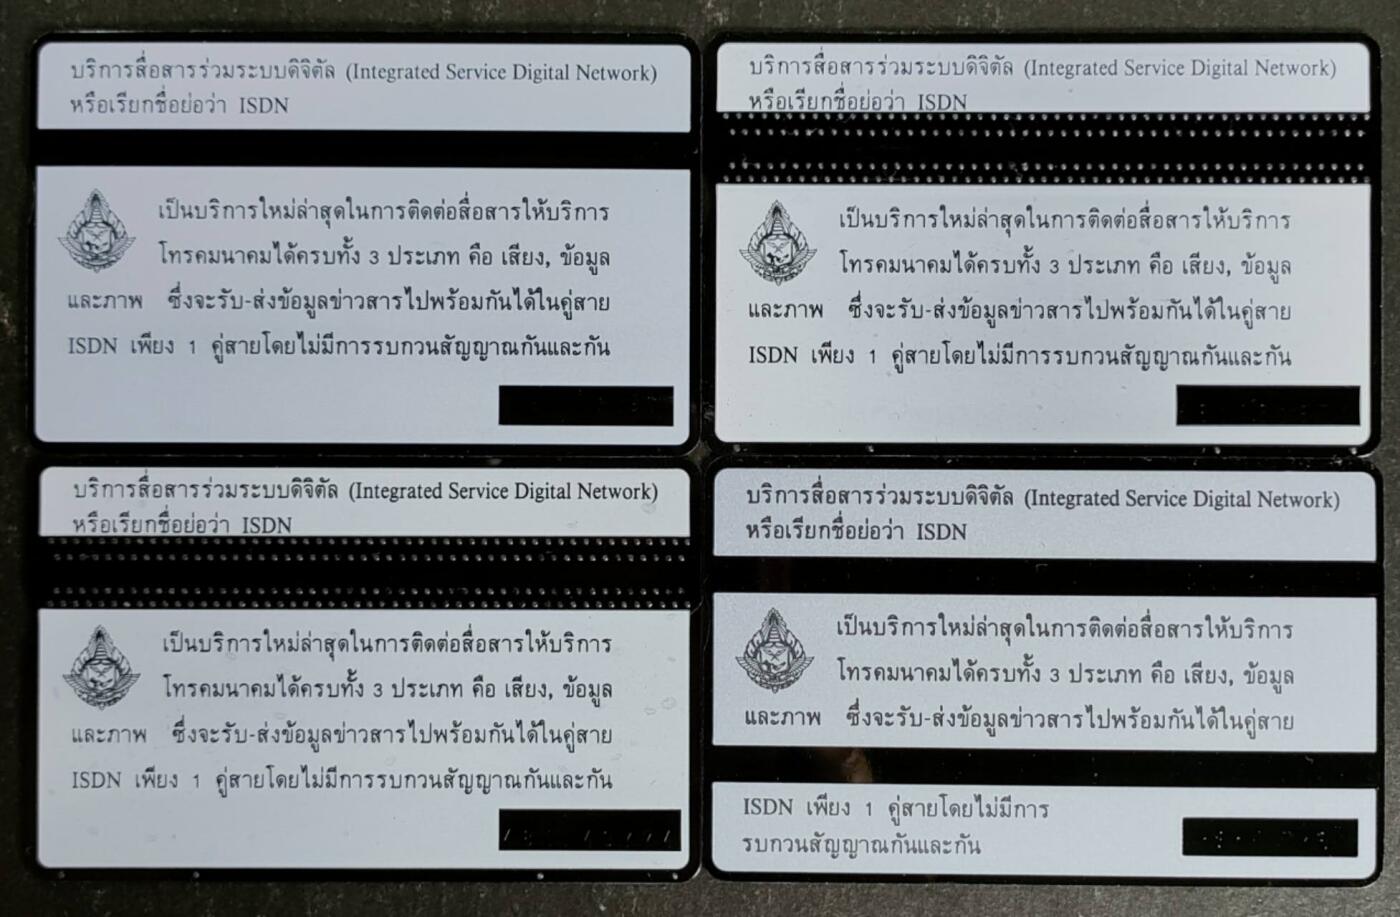 บริการสื่อสารร่วมระบบดิจิตัล (Integrated Service Digital Network)
หรือเรียกชื่อย่อว่า ISDN
เป็นบริการใหม่ล่าสุดในการติดต่อสื่อสารให้บริการ
โทรคมนาคมได้ครบทั้ง 3 ประเภท คือ เสียง, ข้อมูล
และภาพ ซึ่งจะรับ-ส่งข้อมูลข่าวสารไปพร้อมกันได้ในคู่สาย
ISDN เพียง 1 คู่สายโดยไม่มีการรบกวนสัญญาณกันและกัน
บริการสื่อสารร่วมระบบดิจิตัล (Integrated Service Digital Network)
หรือเรียกชื่อย่อว่า ISDN
เป็นบริการใหม่ล่าสุดในการติดต่อสื่อสารให้บริการ
โทรคมนาคมได้ครบทั้ง 3 ประเภท คือ เสียง, ข้อมูล
และภาพ ซึ่งจะรับ-ส่งข้อมูลข่าวสารไปพร้อมกันได้ในคู่สาย
ISDN เพียง 1 คู่สายโดยไม่มีการรบกวนสัญญาณกันและกัน
บริการสื่อสารร่วมระบบดิจิตัล (Integrated Service Digital Network)
หรือเรียกชื่อย่อว่า ISDN
เป็นบริการใหม่ล่าสุดในการติดต่อสื่อสารให้บริการ
โทรคมนาคมได้ครบทั้ง 3 ประเภท คือ เสียง, ข้อมูล
และภาพ ซึ่งจะรับ-ส่งข้อมูลข่าวสารไปพร้อมกันได้ในคู่สาย
ISDN เพียง 1 คู่สายโดยไม่มีการรบกวนสัญญาณกันและกัน
บริการสื่อสารร่วมระบบดิจิตัล (Integrated Service Digital Network)
หรือเรียกชื่อย่อว่า ISDN
เป็นบริการใหม่ล่าสุดในการติดต่อสื่อสารให้บริการ
โทรคมนาคมได้ครบทั้ง 3 ประเภท คือ เสียง, ข้อมูล
และภาพ ซึ่งจะรับ-ส่งข้อมูลข่าวสารไปพร้อมกันได้ในคู่สาย
ISDN เพียง 1 คู่สายโดยไม่มีการ
รบกวนสัญญาณกันและกัน